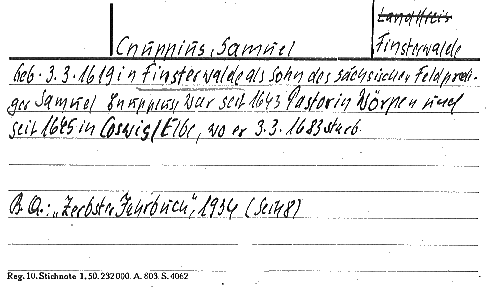 Landkreis
Cnuppius, Samuel Finsterwalde
geb. 3.3.1619 in Finsterwalde als Sohn des sächsischen Feldpredi-
ger Samuel Cnuppius war seit 1643 Pastor in Wörpen und
seit 1645 in Coswig/Elbe, wo er 3.3.1683 starb.
B.Q.: "Zerbster Jahrbuch", 1934 (Seite 8)
Reg. 10. Stichnote 1, 50. 232000. A. 803. S. 4062